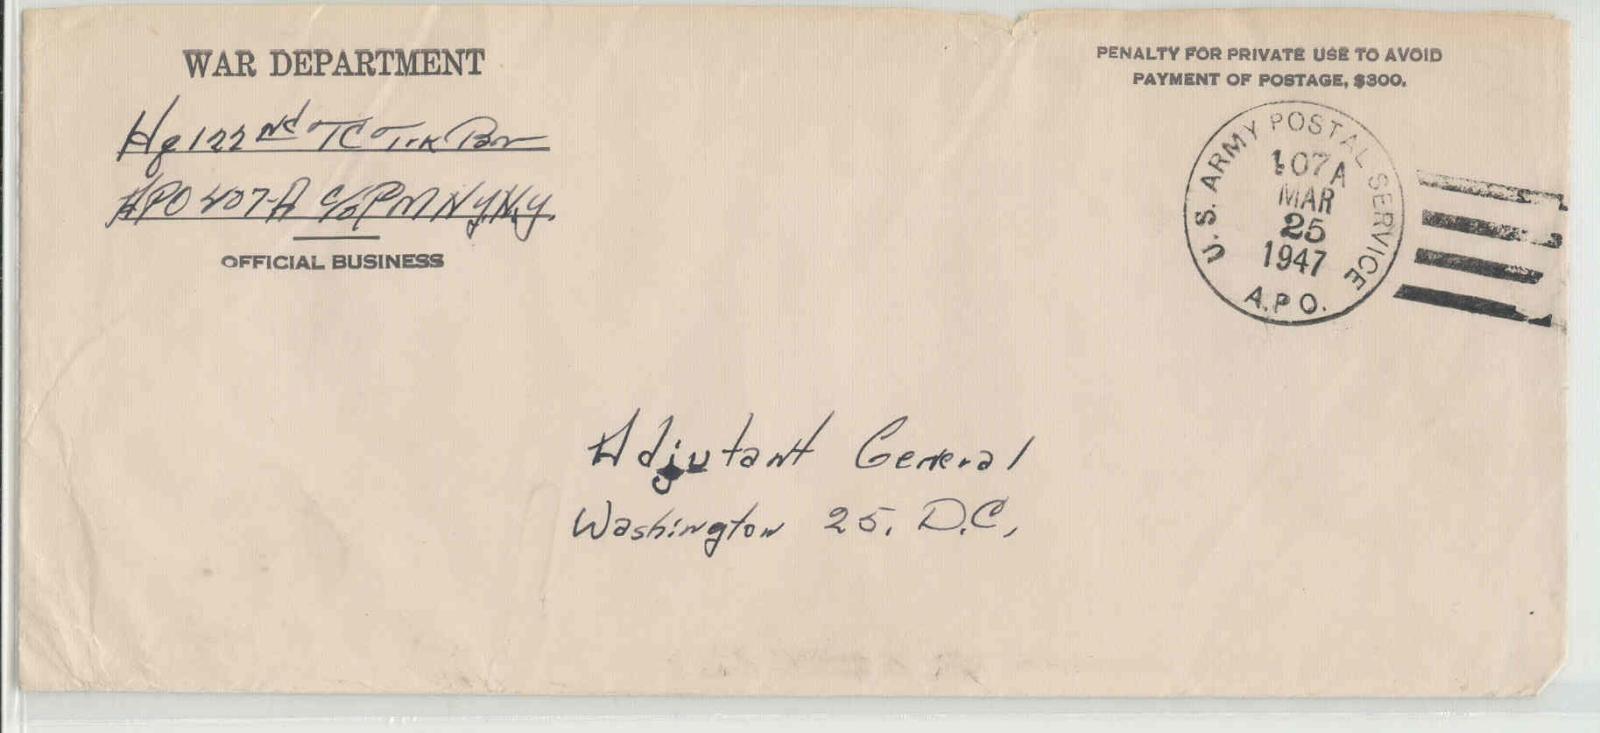 WAR DEPARTMENT
Hq 122nd TC Trk Bn
APO 407-A c/o PM N.Y. N.Y.
OFFICIAL BUSINESS
PENALTY FOR PRIVATE USE TO AVOID
PAYMENT OF POSTAGE, $300.
U.S. ARMY POSTAL SERVICE
107A
MAR
25
1947
A.P.O.
Adjutant General
Washington 25. D.C,